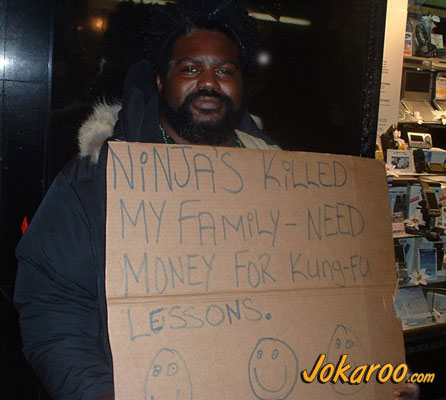 NiNJA'S KiLLED
MY FAMiLY - NEED
MONEY FOR KUNG-FU
LESSONS.
Jokaroo.com